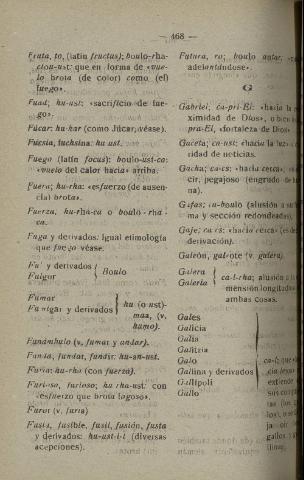 — 468 —
Fruta, to, (latin fructus); boulo-rha-
clou-ust: que en forma de «vue-
lo brota (de color) como (el)
fuego».
Fuad; hu-ust: «sacrificio de fue-
go».
Fúcar: hu-kar (como Júcar, véase).
Fucsia, fuchsina: hu ust.
Fuego (latín focus): boulo-ust-ca:
«vuelo del calor hacia» arriba.
Fuera; hu-rha: «esfuerzo (de ausen-
cia) brota».
Fuerza, hu-rha-ca o boulo-rha-
ca.
Fuga y derivados: Igual etimología
que fuego véase.
Ful y derivados
Fulgor
Boulo
Fumar
Fumigar y derivados
hu (o ust)-
maa, (v.
humo).
Funámbulo (v. fumar y andar).
Funda, fundar, fundir: hu-an-ust.
Furia: hu-rha (con fuerza).
Furioso, furioso; hu rha-ust: con
«esfuerzo que brota fogoso».
Furor (v. furia)
Fusis, fusible, fusil, fusión, fusta
y derivados: hu-ust-i-l (diversas
acepciones).
Futura, ro; boulo antar:
adelentándose».
G
Gabriel; ca-pri-El: «hacia la
ximidad de Dios», o bien
pra-El, «fortaleza de Dios»
Gaceta; ca-ust: «hacia la luz»
ridad de noticias.
Gacha; ca-cs: «hacia cerca»
cir, pegajoso (engrudo de
na).
Gafas; ca-boulo (alusión a su
ma y sección redondeadas).
Gaje; ca-cs: «hacia cerca» (es de
derivación).
Galeón, galeote (v. galera).
Galera
Galería
ca-l-rha; alusión a la
mensión longitud
ambas cosas.
Gales
Galicia
Galia
Galitzia
Galo
Galina y derivados
Gallípoli
Gallo
ca-l; que
extiende
sus
gallos